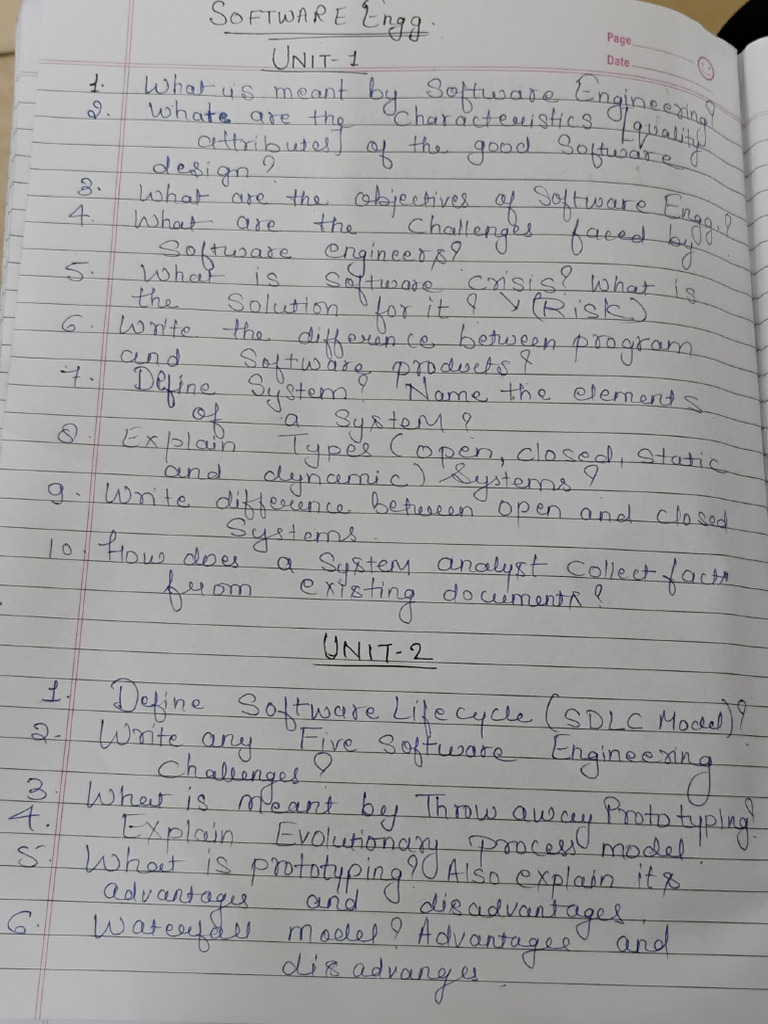 SOFTWARE Engg.
Page
Date
UNIT-1
1. What is meant by Software Engineering?
2. Whats are the Characteristics [quality
attributes] of the good Software
design?
3. What are the objectives of Software Engg.?
4. What are the Challenges faced by
Software engineers?
5. What is software crisis? What is
the Solution for it? (Risk)
6. Write the difference between program
and Software products?
7. Define System? Name the elements
of a System?
8. Explain Types (open, closed, static
and dynamic) Systems?
9. Write difference between open and closed
Systems.
10. How does a System analyst collect facts
from existing documents?
UNIT-2
1. Define Software Lifecycle (SDLC Model)?
2. Write any Five Software Engineering
Challenges?
3. What is meant by Throw away Prototyping?
4. Explain Evolutionary process model.
5. What is prototyping? Also explain its
advantages and disadvantages.
6. Waterfall model? Advantages and
disadvanges.